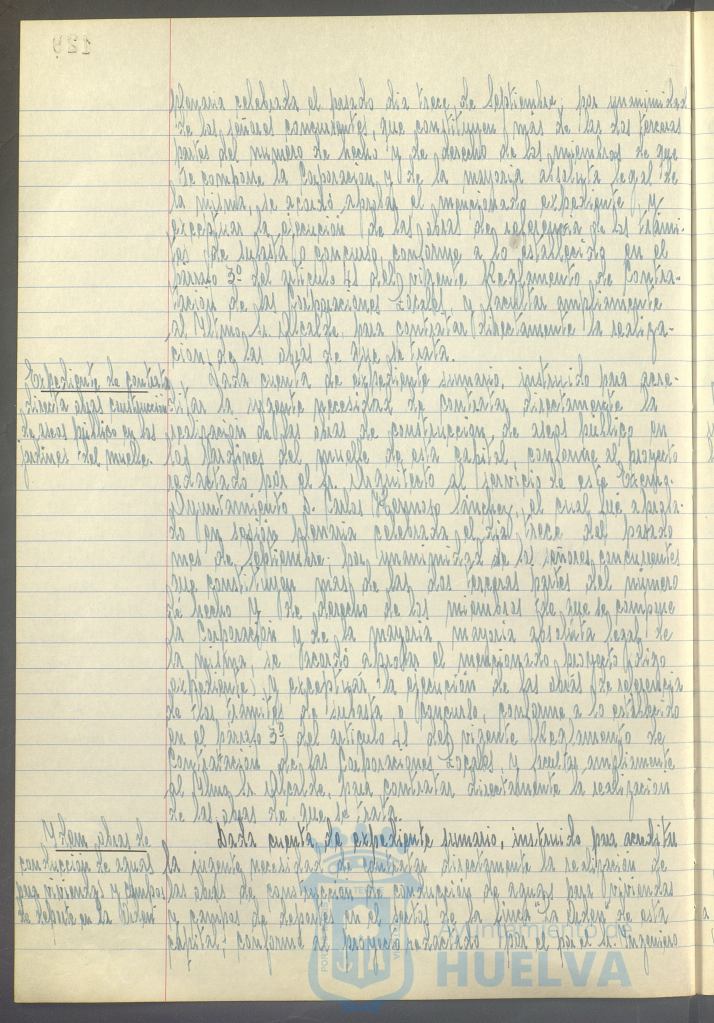 129
plenaria celebrada el pasado dia trece de Septiembre; por unanimidad
de los señores concurrentes, que constituyen más de las dos terceras
partes del numero de hecho y de derecho de los miembros de que
se compone la Corporación y de la mayoria absoluta legal de
la misma, se acordó aprobar el mencionado expediente, y
exceptuar la ejecución de las obras de referencia de los trámi-
tes de subasta o concurso, conforme a lo establecido en el
párrafo 3º del articulo 41 del vigente Reglamento de Contra-
tación de las Corporaciones Locales y facultar ampliamente
al Iltmo. Sr. Alcalde, para contratar directamente la realiza-
ción de las obras de que se trata.
Expediente de contrata
directa obras construcción
de aseos público en los
jardines del muelle.
Dada cuenta de expediente sumario, instruido para acre-
ditar la urgente necesidad de contratar directamente la
realización de las obras de construcción de aseos público en
los Jardines del muelle de esta capital, conforme al proyecto
redactado por el Sr. Arquitecto al servicio de este Excmo.
Ayuntamiento D. Carlos Hermoso Sánchez, el cual fué aproba-
do en sesión plenaria celebrada el dia trece del pasado
mes de Septiembre; por unanimidad de los señores concurrentes
que constituyen mas de las dos terceras partes del número
de hecho y de derecho de los miembros de que se compone
la Corporación y de la mayoria mayoria absoluta legal de
la misma, se acordó aprobar el mencionado proyecto digo
expediente; y exceptuar la ejecución de las obras de referencia
de los trámites de subasta o concurso, conforme a lo establecido
en el párrafo 3º del articulo 41 del vigente Reglamento de
Contratación de las Corporaciones Locales, y facultar ampliamente
al Iltmo. Sr. Alcalde, para contratar directamente la realización
de las obras de que se trata.
Idem obras de
conducción de aguas
para viviendas y campos
de deporte en la Orden
Dada cuenta de expediente sumario, instruido para acreditar
la urgente necesidad de contratar directamente la realización de
las obras de construcción de conducción de aguas para viviendas
y campos de deportes en el sector de la finca "La Orden" de esta
capital, conforme al proyecto redactado por el por el Sr. Ingeniero
Ayuntamiento de
HUELVA